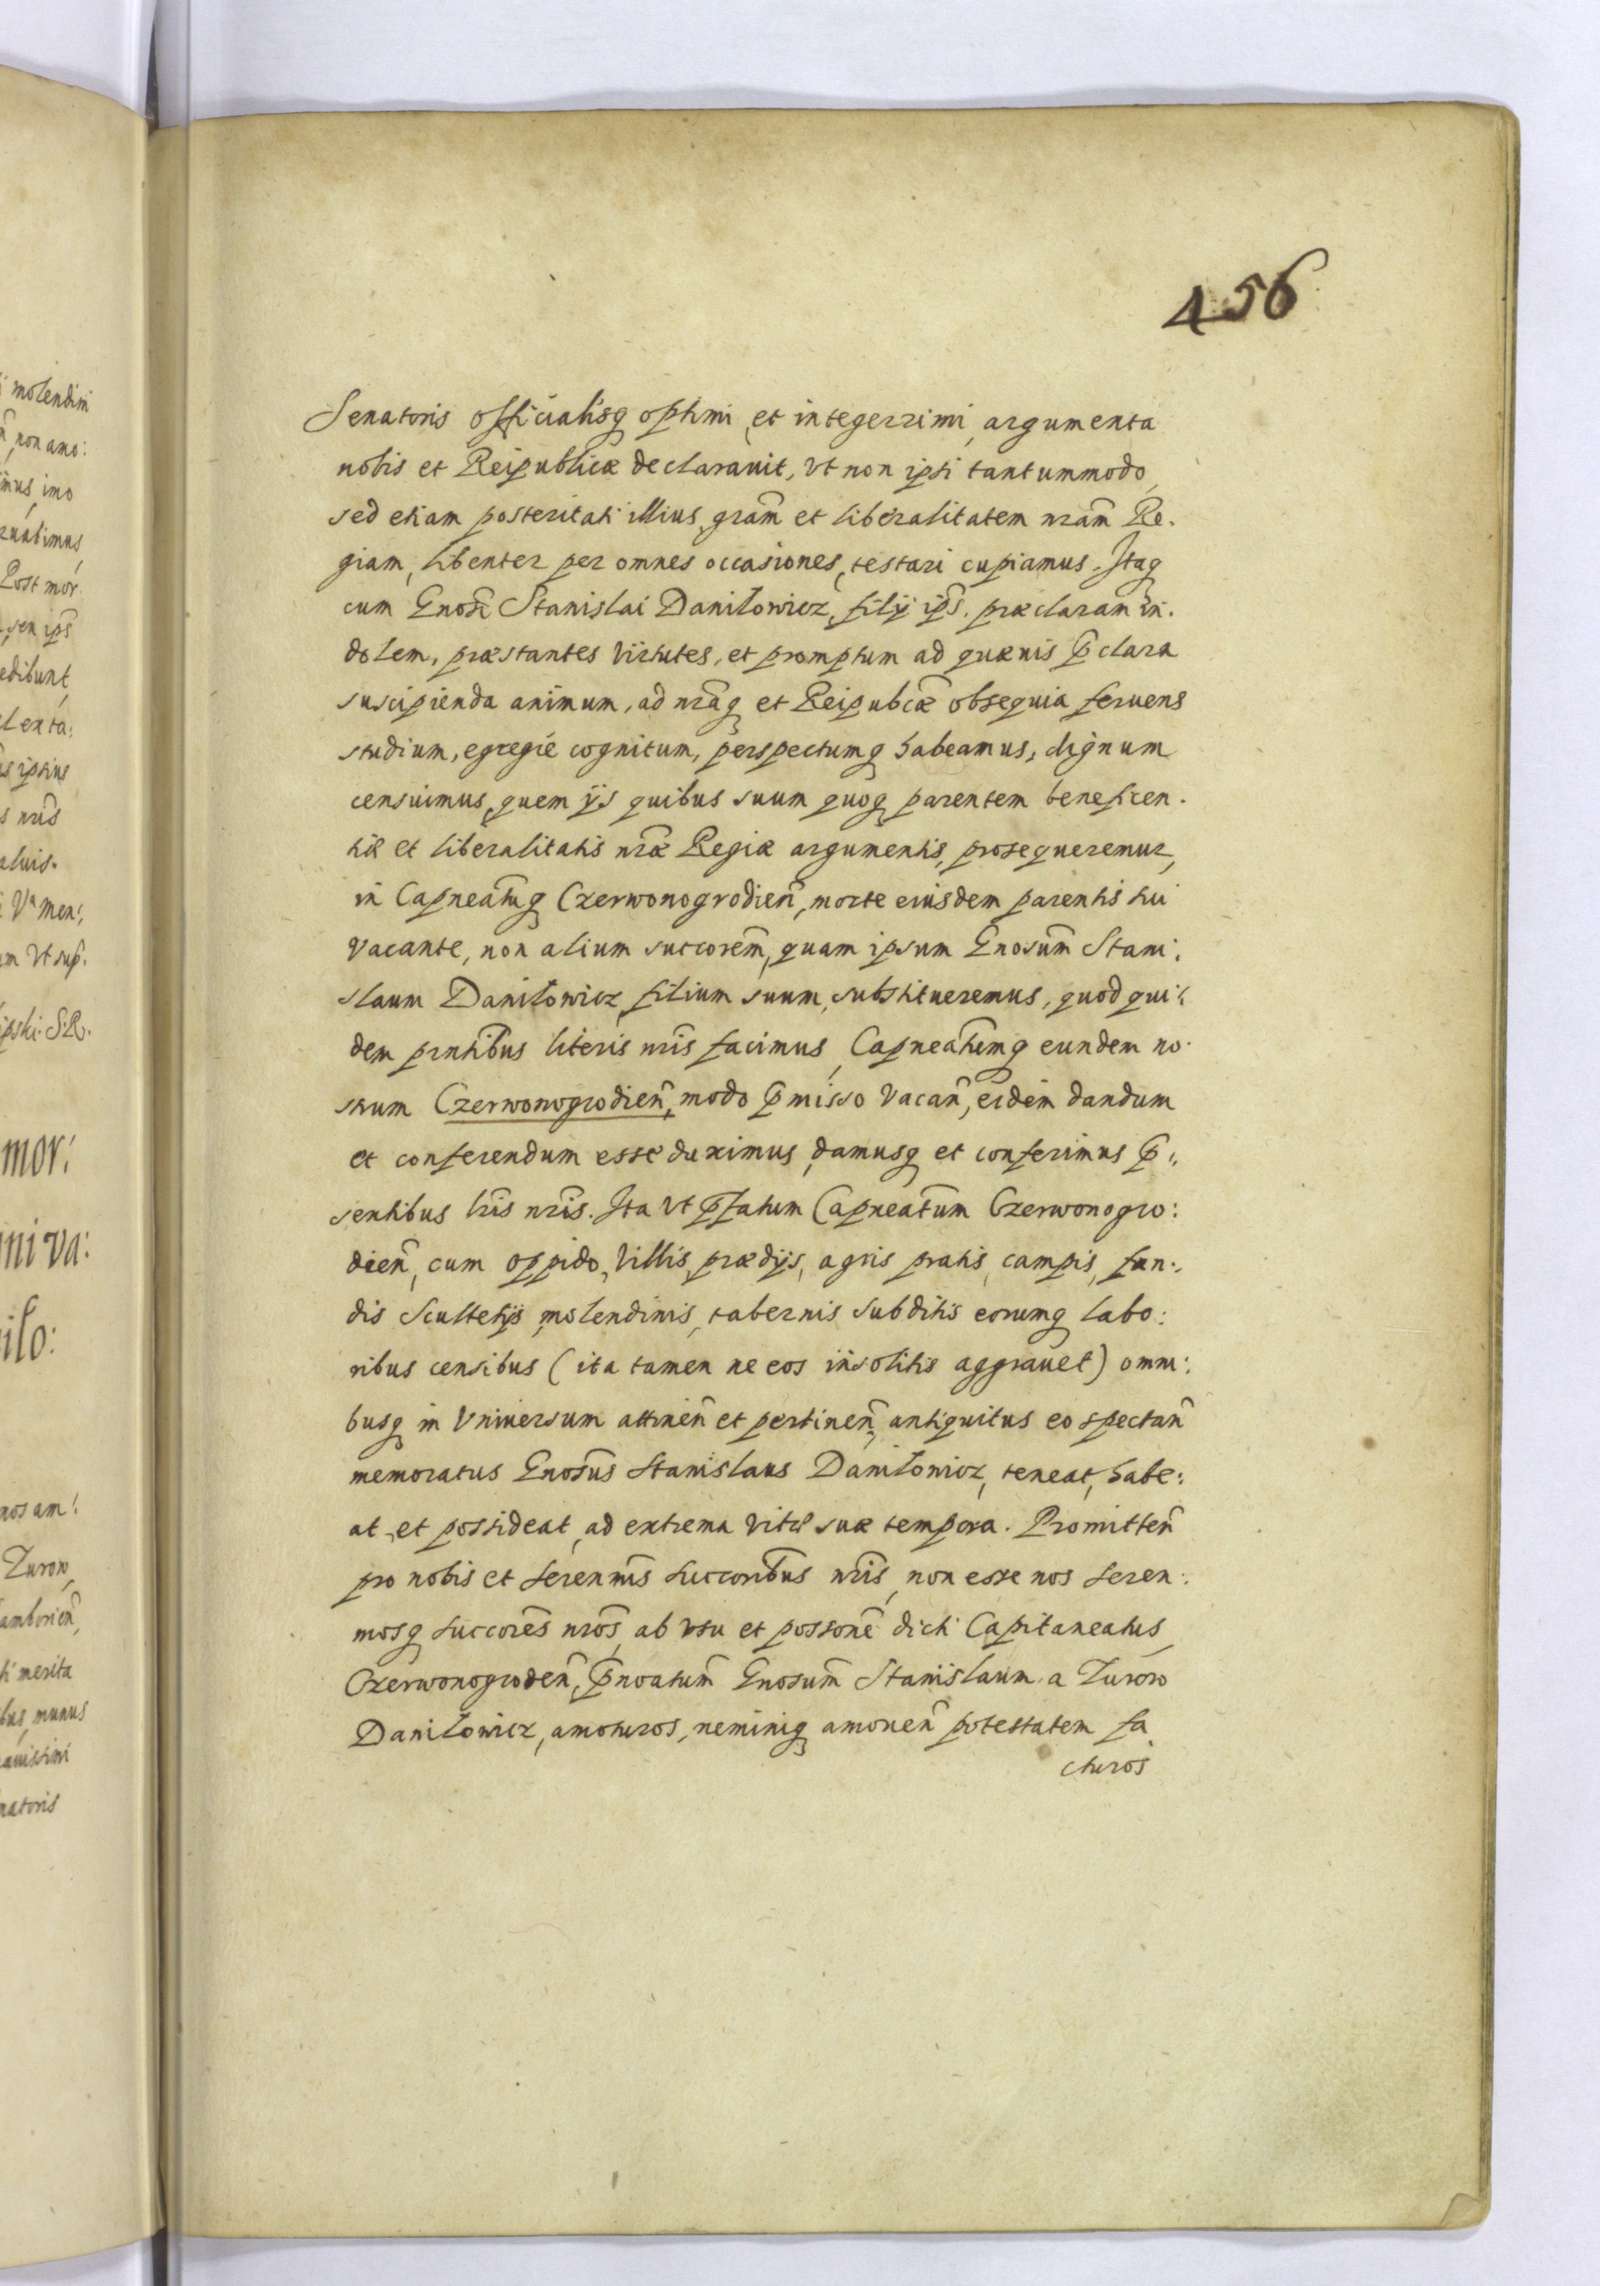 456
Senatoris officialisq optimi et integerrimi, argumenta
nobis et Reipublicæ declarauit, vt non ipsi tantummodo,
sed etiam posteritati illius, grãm et liberalitatem nrãm Re.
giam, libenter per omnes occasiones, testari cupiamus. Itaq
cum Gnosi Stanislai Daniłowicz, filij ips̃. præclaram in.
dolem, præstantes virtutes, et promptum ad quæuis p̃clara
suscipienda animum, ad nrãq et Reipubcæ obsequia feruens
studium, egregie cognitum, perspectumq habeamus, dignum
censuimus, quem ijs quibus suum quoq parentem beneficen.
tiæ et liberalitatis nræ Regiæ argumentis, prosequeremur,
in Capneatuq Czerwonogrodieñ, morte eiusdem parentis sui
vacante, non alium succorem̃, quam ipsum Gnosum̃ Stani:
slaum Daniłowicz filium suum, substitueremus, quod qui:
dem prntibus literis nris facimus, Capneatumq eundem no.
strum Czerwonogrodieñ, modo p̃misso vacañ, eidem dandum
et conferendum esse duximus, damusq et conferimus p̃:
sentibus lris nris. Ita vt p̃fatum Capneatum Czerwonogro:
dieñ, cum oppido, villis, prædijs, agris pratis, campis, fun:
dis Scultetijs molendinis, tabernis subditis eorumq labo:
ribus censibus (ita tamen ne eos insolitis aggrauet) omni:
busq in Vniuersum attineñ et pertineñ, antiquitus eo spectañ
memoratus Gnosus Stanislaus Daniłowicz, teneat, habe:
at, et possideat, ad extrema vitæ suæ tempora. Promitteñ
pro nobis et serenmis succoribus nris, non esse nos seren:
mosq succores nros, ab vsu et possone dicti Capitaneatus
Czerwonogrodeñ, p̃noatum Gnosum Stanislaum a Zurow
Daniłowicz, amoturos, neminiq amoueñ potestatem fa
cturos